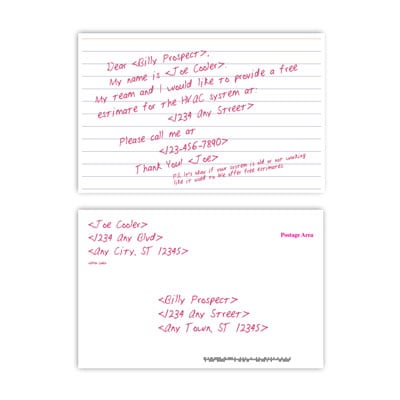 Dear <Billy Prospect>,
My name is <Joe Cooler>.
My team and I would like to provide a free
estimate for the HVAC system at:
<1234 Any Street>
Please call me at
<123-456-7890>
Thank You! <Joe>
P.S. It's okay if your system is old or not working
like it used to we offer free estimates
<Joe Cooler>
<1234 Any Blvd>
<Any City, ST 12345>
Postage Area
<Billy Prospect>
<1234 Any Street>
<Any Town, ST 12345>